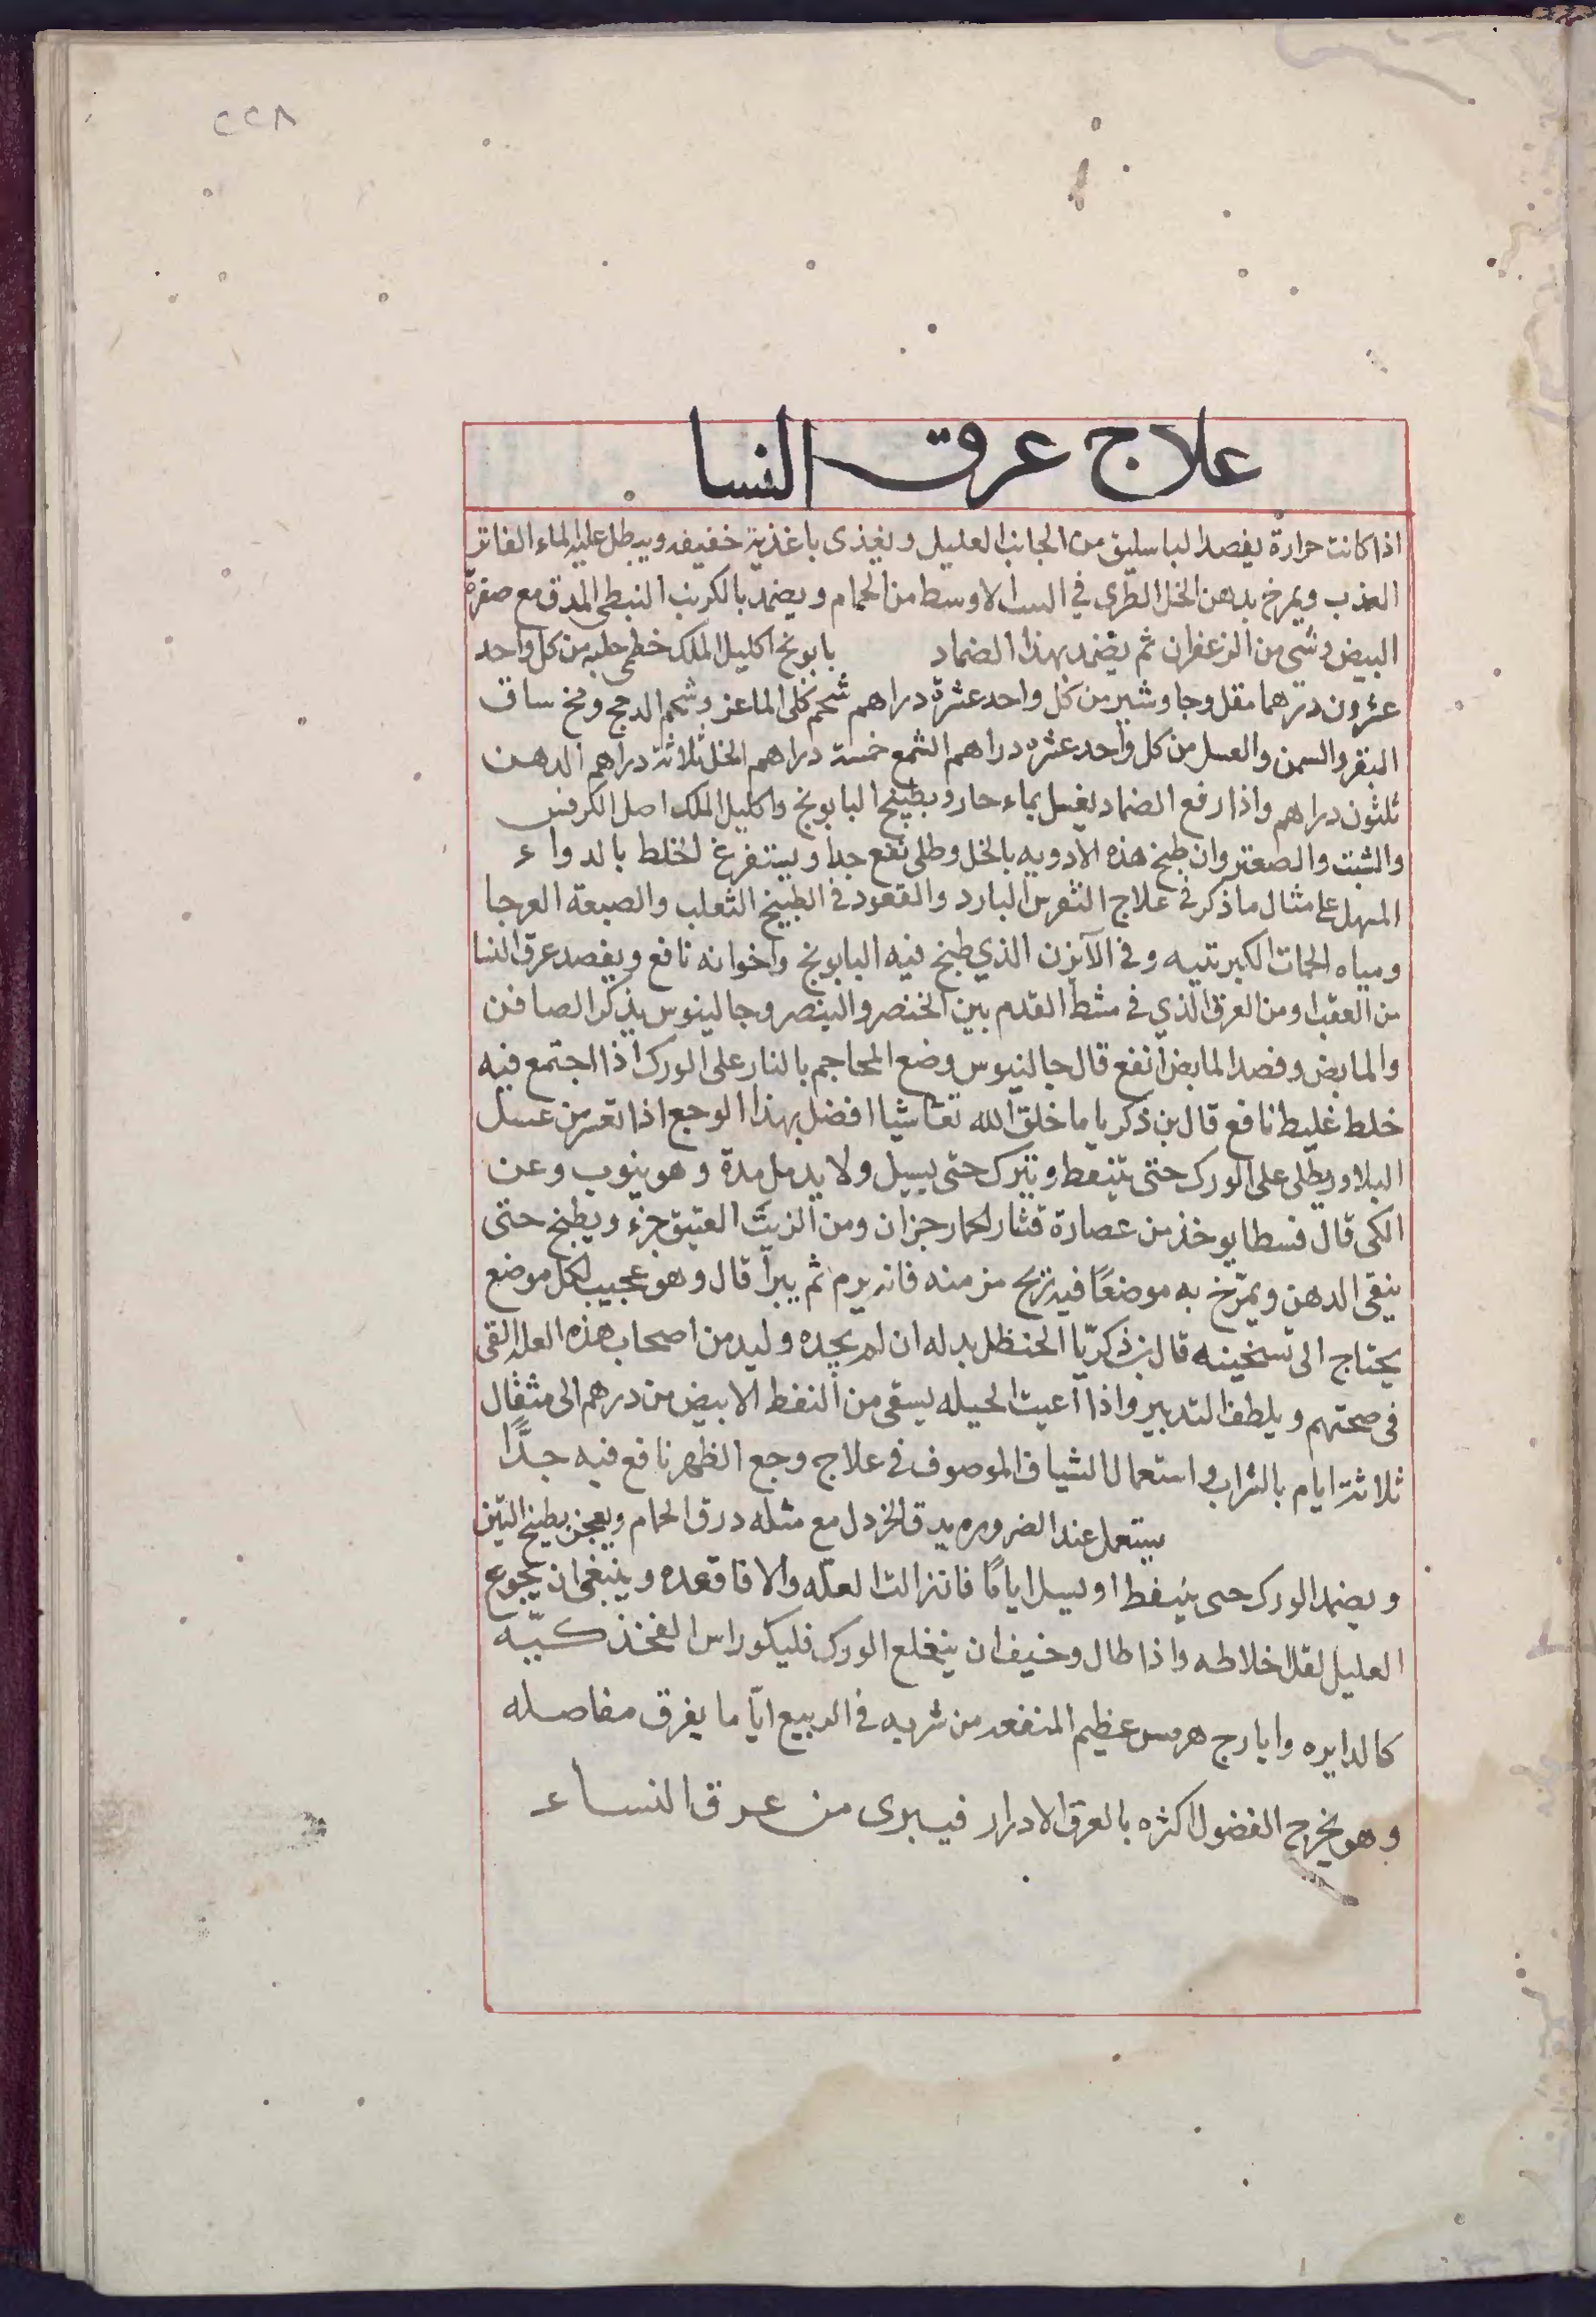 ٢٢٨
علاج عرق النسا
اذا كانت حرارة يفصد الباسليق من الجانب العليل ويغذى باغذية خفيفه ويبطل عليه الماء الفاتر
العذب ويمرخ بدهن الخل الطرى في البيت الاوسط من الحمام ويضمد بالكرنب النبطى المدق مع صفرة
البيض وشي من الزعفران ثم يضمد بهذا الضماد بابونج اكليل الملك خطمى حلبه من كل واحد
عشرون درهما مقل وجاوشير من كل واحد عشرة دراهم شحم كلى الماعز وشحم الدجج ومخ ساق
البقر والسمن والعسل من كل واحد عشره دراهم الشمع خمسة دراهم الخل ثلاثة دراهم الدهن
ثلثون دراهم واذا رفع الضماد يغسل بماء حار وبطبيخ البابونج واكليل الملك اصل الكرفس
والشبت والصعتر وان طبخ هذه الادويه بالخل وطلى نفع جدا ويستفرغ الخلط بالدواء
المسهل على مثال ما ذكر في علاج النقرس البارد والقعود في الطبيخ الثعلب والضبعة العرجا
ومياه الحمات الكبريتيه وفي الآبزن الذي طبخ فيه البابونج واخوانه نافع ويفصد عرق النسا
من العقب او من العرق الذي في مشط القدم بين الخنصر والبنصر وجالينوس يذكر الصافن
والمابض وفصد المابض انفع قال جالنيوس وضع المحاجم بالنار على الورك اذا اجتمع فيه
خلط غليظ نافع قال بن ذكريا ما خلق الله تعا شيا افضل بهذا الوجع اذا تعسر من عسل
البلادر يطلى على الورك حتى يتنفط ويترك حتى يسيل ولا يدمل مدة وهو ينوب وعن
الكى قال فسطا يوخذ من عصارة قثار الحمار جزان ومن الزيت العتيق جزء ويطبخ حتى
ينقى الدهن ويمرّخ به موضعًا فيه ريح مزمنه فانه يرم ثم يبرأ قال وهو عجيب لكل موضع
يحتاج الى تسخينه قال بن ذكريّا الحنظل بدله ان لم يجده وليد من اصحاب هذه العله القى
فى صحتهم ويلطف التدبير واذا اعيت الحيله يسقى من النفط الابيض من درهم الى مثقال
ثلاثة ايام بالشراب واستعمال الشياف الموصوف في علاج وجع الظهر نافع فيه جدًّا
يستعمل عند الضروره يدق الخردل مع مثله درق الحمام ويعجن بطبيخ التين
ويضمد الورك حى يتنفط او يسيل ايامًا فان زالت العلّه والا فاقعده وينبغى ان يجوع
العليل لقل اخلاطه واذا طال وخيف ان ينخلع الورك فليكو راس الفخذ كيّه
كالدايره وايارج هرمس عظيم المنفعه من شربه في الربيع ايّاما يفرق مفاصله
وهو يخرج الفضول اكثره بالعرق الادرار فيبرى من عرق النساء